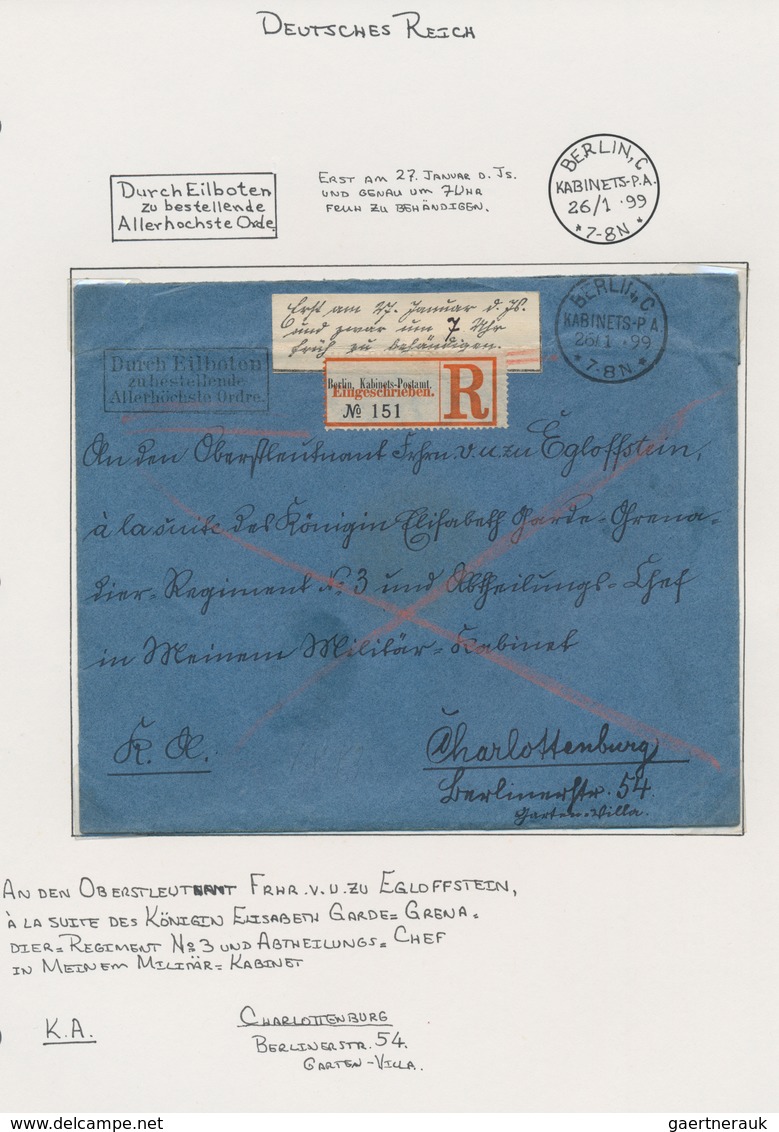 DEUTSCHES REICH
Durch Eilboten
zu bestellende
Allerhochste Orde.
ERST AM 27. JANUAR D. JS.
UND GENAU UM 7 UHR
FRUH ZU BEHÄNDIGEN.
BERLIN, C
KABINETS-P.A.
26/1 . 99
* 7-8N *
Erst am 27. Januar d. Js.
und zwar um 7 Uhr
früh zu behändigen.
BERLIN, C
KABINETS-P.A.
26/1 . 99
* 7-8N. *
Durch Eilboten
zu bestellende
Allerhöchste Ordre.
Berlin, Kabinets-Postamt.
Eingeschrieben.
№ 151
R
An den Oberstleutnant Frhrn. v. u. zu Egloffstein,
à la suite des Königin Elisabeth Garde=Grena=
dier=Regiment No. 3 und Abtheilungs=Chef
in Meinem Militär=Kabinet
K. A.
Charlottenburg
Berlinerstr. 54.
Garten=Villa.
AN DEN OBERSTLEUTNANT FRHR. V. U. ZU EGLOFFSTEIN,
À LA SUITE DES KÖNIGIN ELISABETH GARDE=GRENA=
DIER=REGIMENT No. 3 UND ABTHEILUNGS=CHEF
IN MEINEM MILITÄR=KABINET
K.A.
CHARLOTTENBURG
BERLINERSTR. 54.
GARTEN-VILLA.
gaertnerauk